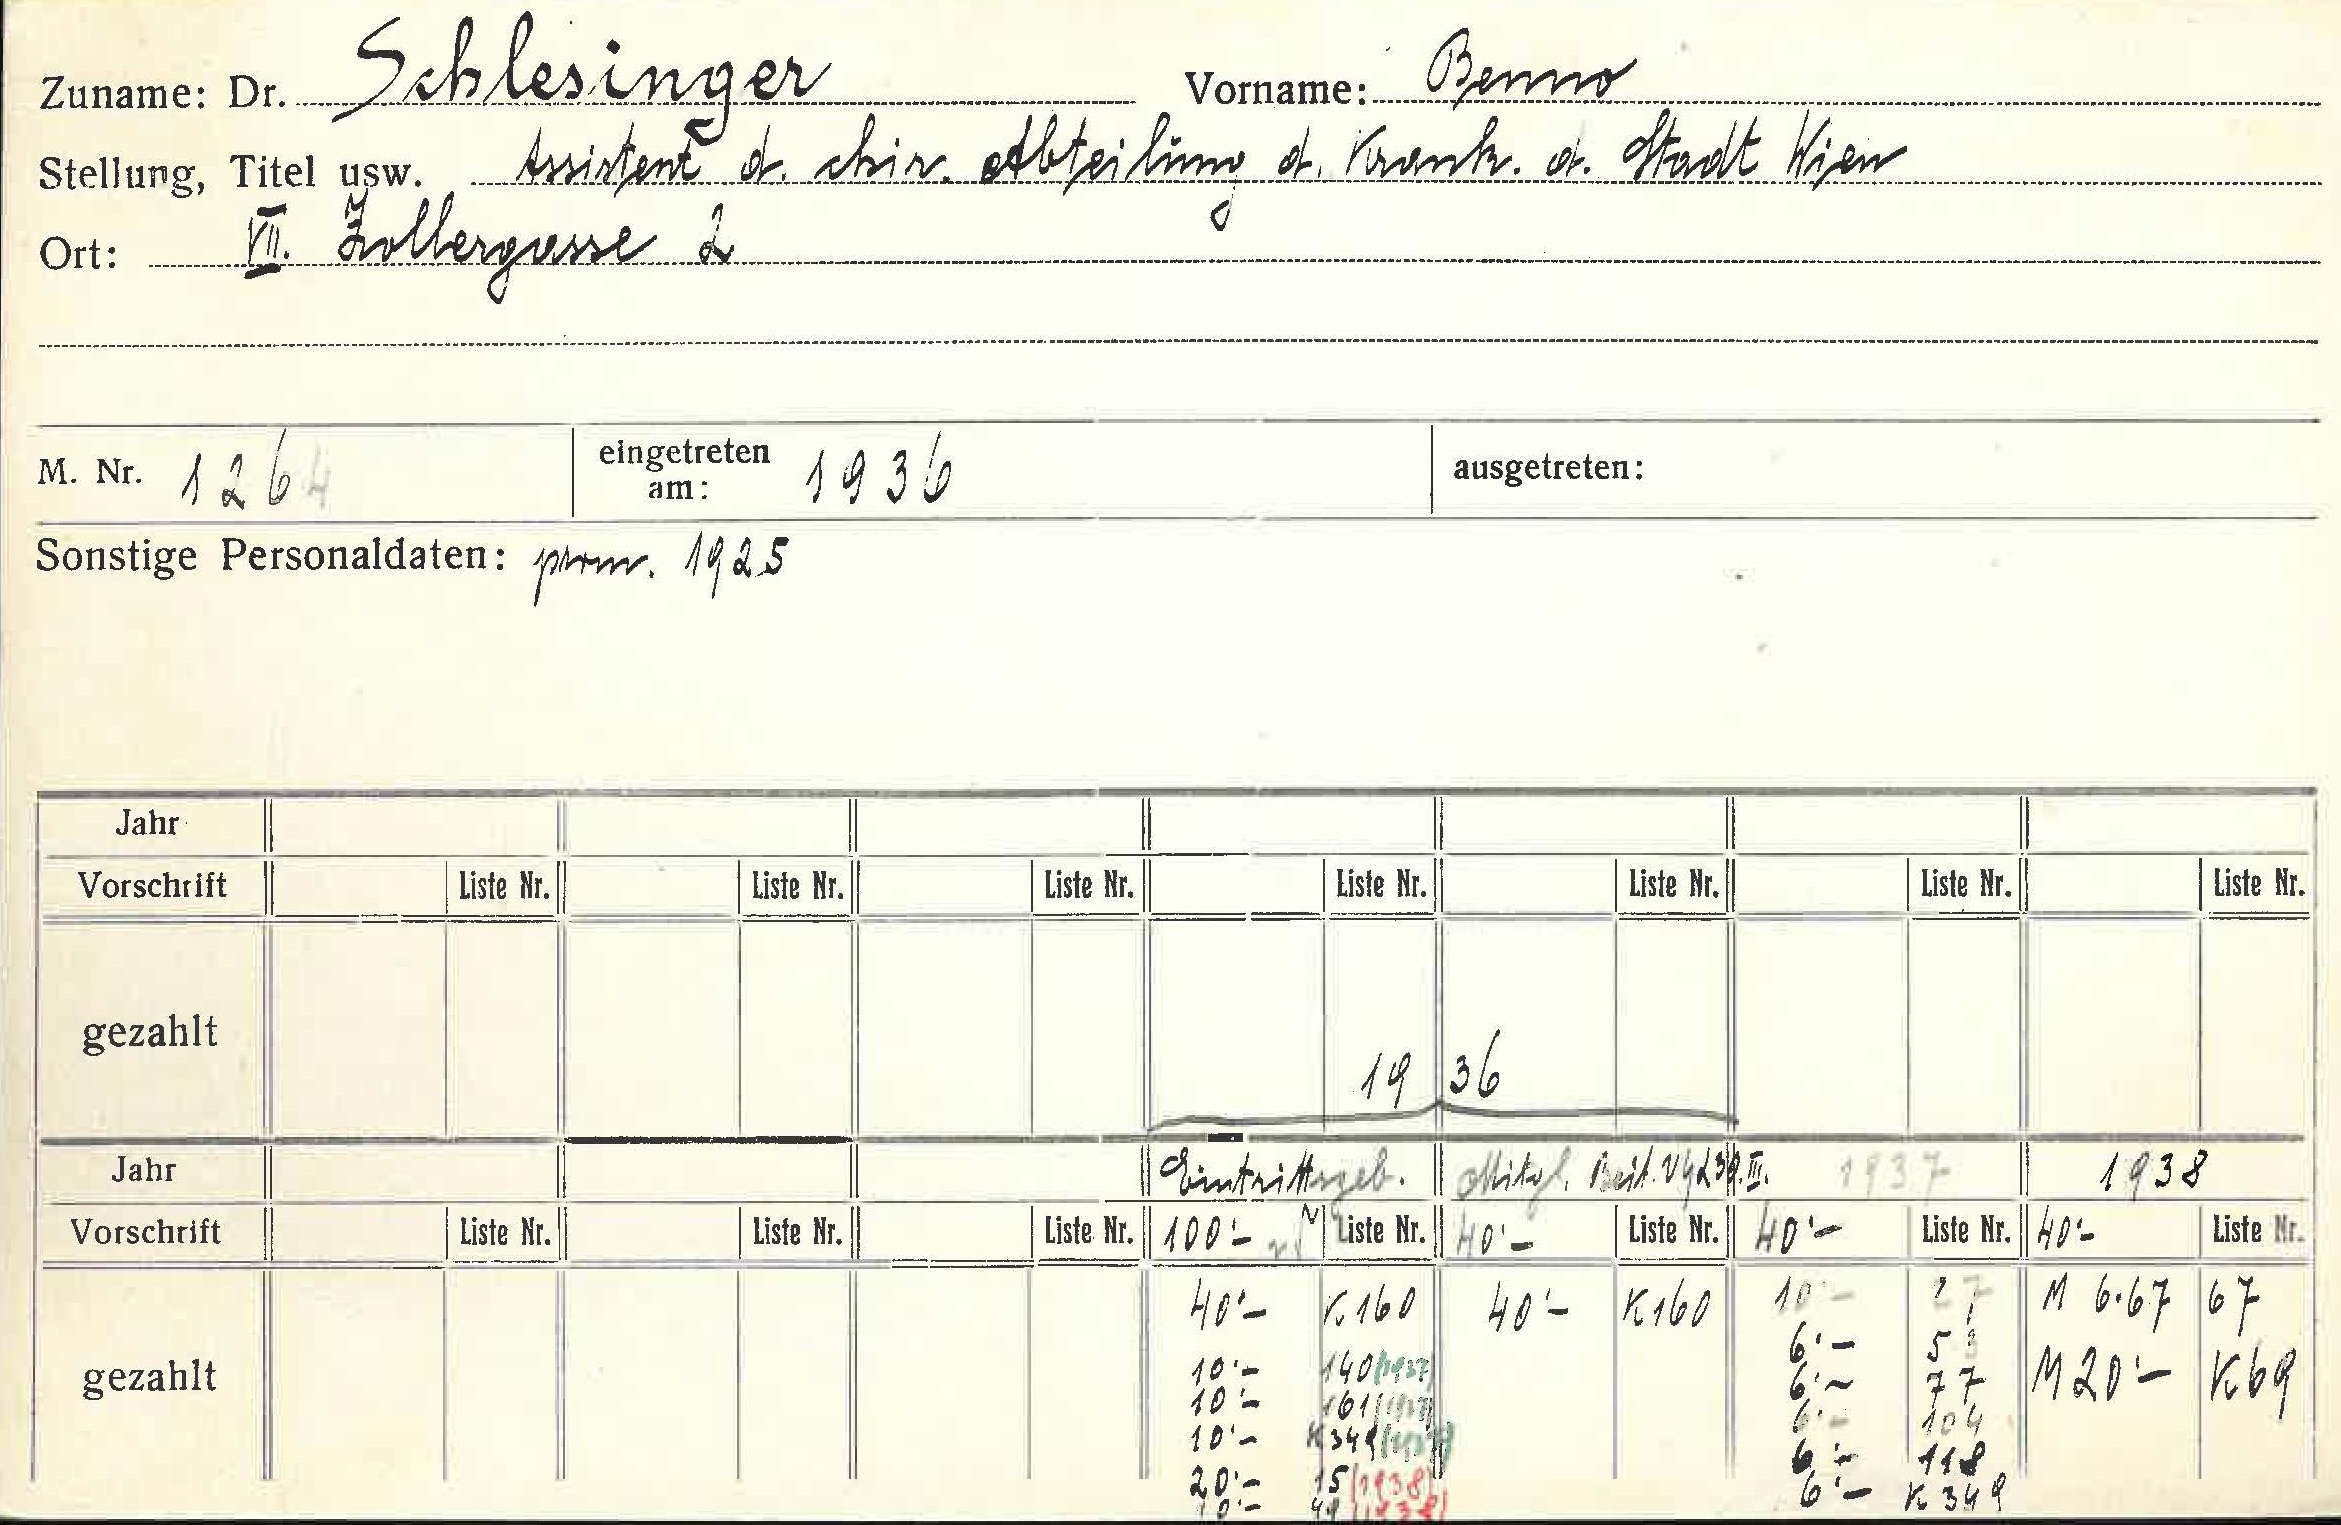 Zuname: Dr. Schlesinger Vorname: Benno
Stellung, Titel usw. Assistent d. chir. Abteilung d. Krank. d. Stadt Wien
Ort: VII. Zollergasse 2
M. Nr. 1264 eingetreten am: 1936 ausgetreten:
Sonstige Personaldaten: prom. 1925
Jahr
Vorschrift Liste Nr. Liste Nr. Liste Nr. Liste Nr. Liste Nr. Liste Nr. Liste Nr.
gezahlt
1936
Jahr Eintrittsgeb. Mitgl. Beit. III. 1937 1938
Vorschrift Liste Nr. Liste Nr. Liste Nr. 100'- Liste Nr. 40'- Liste Nr. 40'- Liste Nr. 40'- Liste Nr.
gezahlt
40'- K160 40'- K160 10'- 27 M 6.67 67
10'- 140 (1937) 6'- 53 M 20'- K69
10'- 161 (1937) 6'- 77
10'- K349 (1937) 6'- 104
20'- 15 (1938) 6'- 118
10'- 49 (1938) 6'- K349